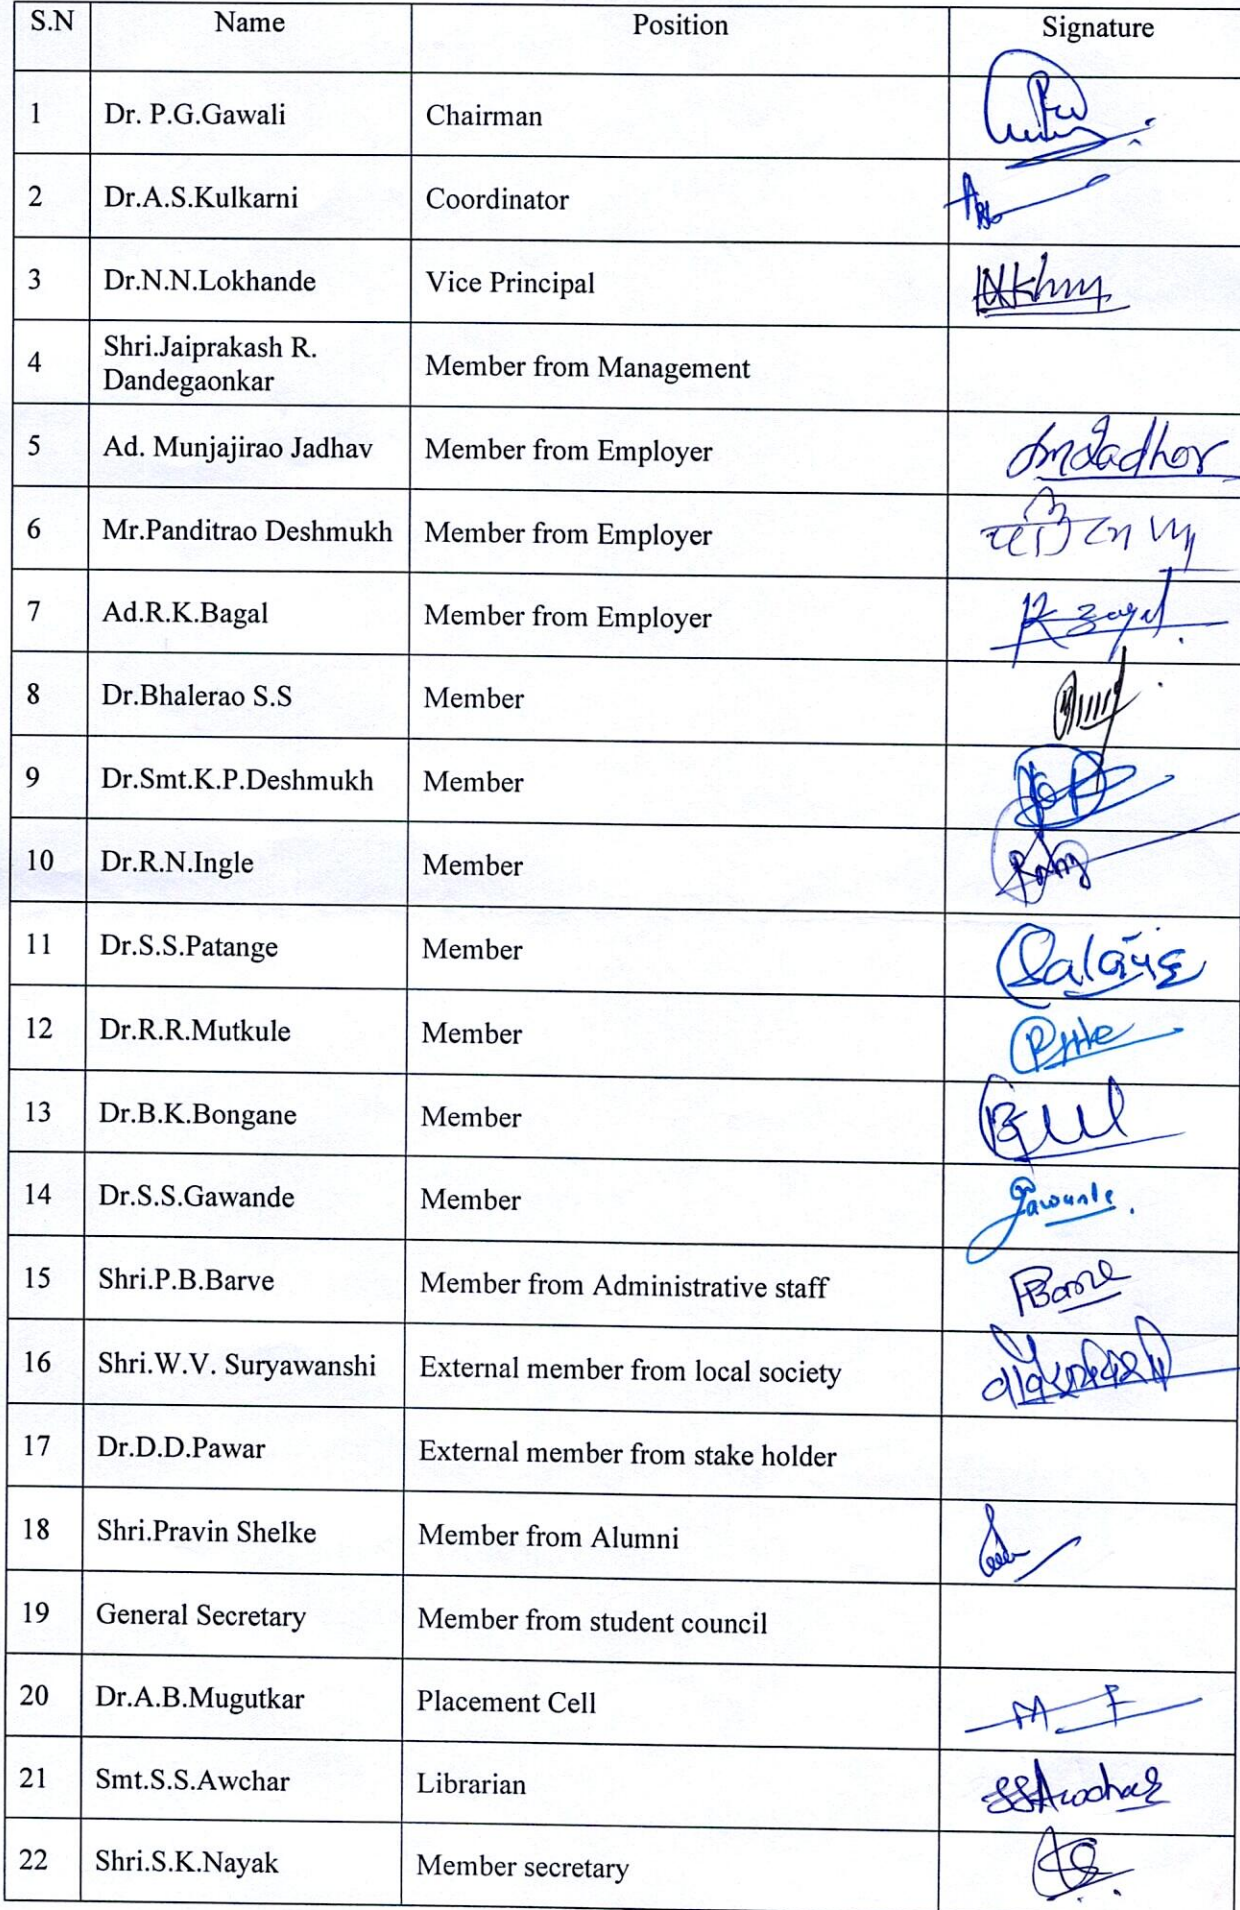 S.N Name Position Signature
1 Dr. P.G.Gawali Chairman
2 Dr.A.S.Kulkarni Coordinator
3 Dr.N.N.Lokhande Vice Principal
4 Shri.Jaiprakash R. Dandegaonkar Member from Management
5 Ad. Munjajirao Jadhav Member from Employer
6 Mr.Panditrao Deshmukh Member from Employer
7 Ad.R.K.Bagal Member from Employer
8 Dr.Bhalerao S.S Member
9 Dr.Smt.K.P.Deshmukh Member
10 Dr.R.N.Ingle Member
11 Dr.S.S.Patange Member
12 Dr.R.R.Mutkule Member
13 Dr.B.K.Bongane Member
14 Dr.S.S.Gawande Member Gawande
15 Shri.P.B.Barve Member from Administrative staff
16 Shri.W.V. Suryawanshi External member from local society
17 Dr.D.D.Pawar External member from stake holder
18 Shri.Pravin Shelke Member from Alumni
19 General Secretary Member from student council
20 Dr.A.B.Mugutkar Placement Cell
21 Smt.S.S.Awchar Librarian SSAwchar
22 Shri.S.K.Nayak Member secretary